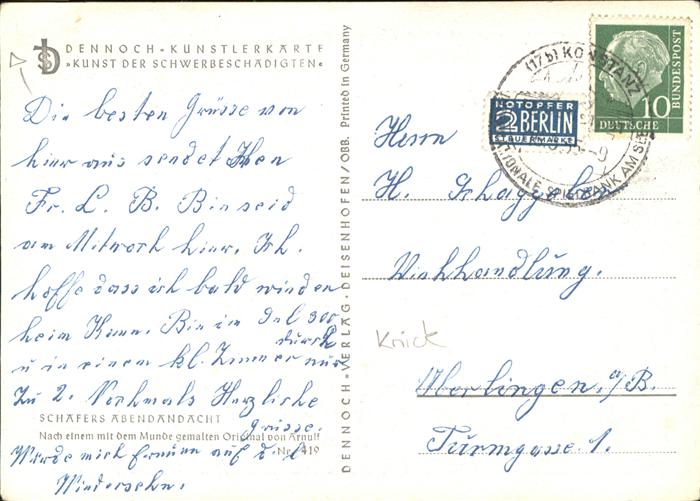 DENNOCH-KÜNSTLERKARTE
»KUNST DER SCHWERBESCHÄDIGTEN«
Die besten Grüsse von
hier aus sendet Ihnen
Fr. L. B. Bin seid
am Mitwoch hier. Ich
hoffe dass ich bald wieder
heim Komm. Bin im
u in einem kl. Zimmer nur
zu 2. Nochmals Herzliche
Grüsse.
SCHÄFERS ABENDANDACHT
Nach einem mit dem Munde gemalten Original von Arnulf
Nr. 419
Würde mich freuen auf d. l.
Wiedersehn.
DENNOCH-VERLAG · DEISENHOFEN/OBB. Printed in Germany
(17b) KONSTANZ
INTERNATIONALE SPIELBANK AM SEE
NOTOPFER
2 BERLIN
STEUERMARKE
10
DEUTSCHE BUNDESPOST
Herrn
H.
Viehhandlung.
Knick
Überlingen a/B.
Turmgasse 1.